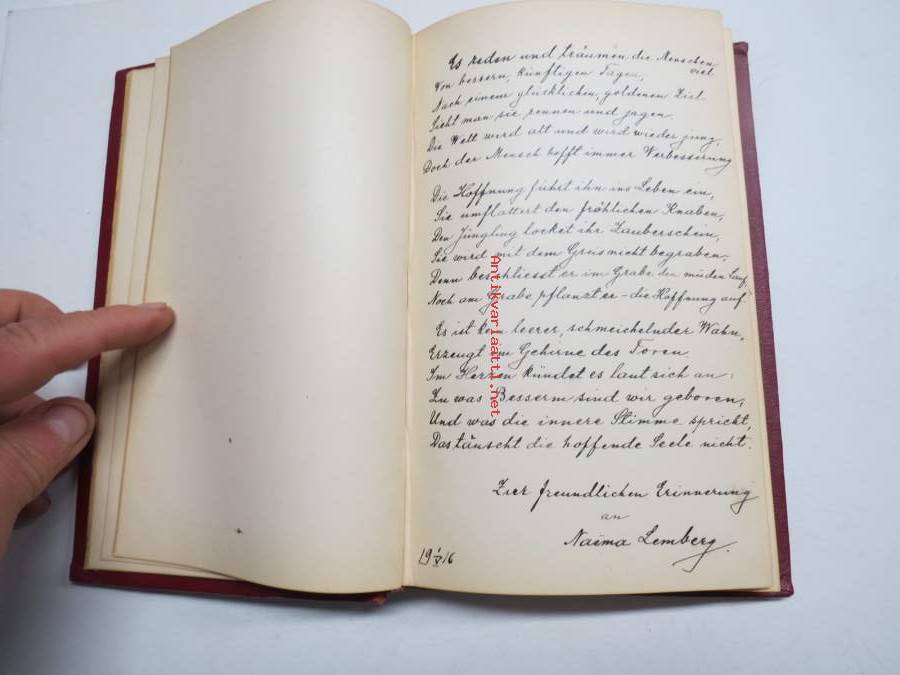 Es reden und träumen die Menschen viel
Von bessern, künftigen Tagen,
Nach einem glücklichen, goldenen Ziel
Sieht man sie rennen und jagen.
Die Welt wird alt und wird wieder jung,
Doch der Mensch hofft immer Verbesserung
Die Hoffnung führt ihn ins Leben ein,
Sie umflattert den fröhlichen Knaben,
Den Jüngling locket ihr Zauberschein,
Sie wird mit dem Greis nicht begraben;
Denn beschliesst er im Grabe den müden Lauf,
Noch am Grabe pflanzt er – die Hoffnung auf
Es ist kein leerer, schmeichelnder Wahn,
Erzeugt im Gehirne des Toren.
Im Herzen kündet es laut sich an:
Zu was Besserm sind wir geboren;
Und was die innere Stimme spricht,
Das täuscht die hoffende Seele nicht.
Zur freundlichen Erinnerung
an
Naima Lemberg.
19 1/V 16
Antikvariaatti.net